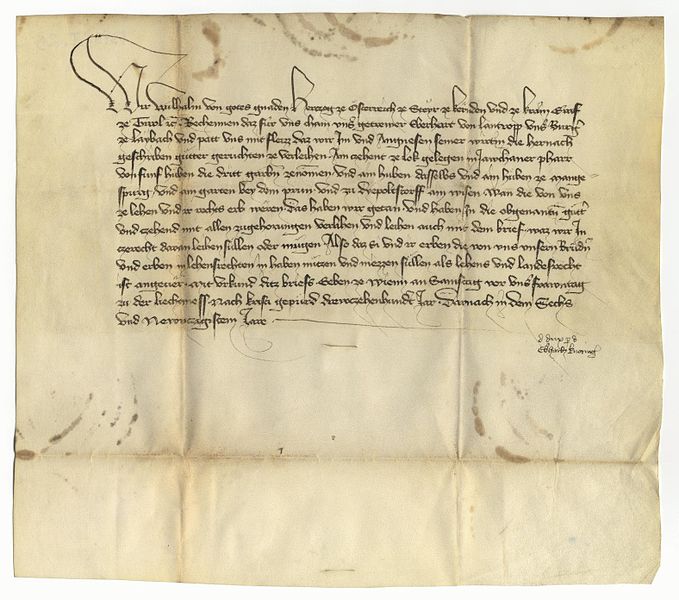 Wir Wilhalm von gotes gnaden Herczog ze Österreich ze Steyr ze kernden und ze krain Graf
ze Tirol etc. Bechennen daz für uns cham unser getrewer Eberhart von
ze laybach und patt uns mit fleizz daz wir Im und Angnesen seiner wirtin die hernach
geschriben gütter geruchten ze verleihen. Am zehent ze lok gelegen in pharr
von fünf huben die dritt garbn ze nemen und am huben daselbs und am huben ze
und am garten bey dem prun und zu am wisen. Wan die von uns
ze lehen und ir rechts erb weren. Das haben wir getan und haben In die obgenanten gütter
und zehend mit allen zugehorungen verlihen und leihen auch mit dem brief. was wir In
ze recht daran leihen süllen oder mügen. Also daz Si und ir erben die von uns unsern Brüdern
und erben in lehensrechten in haben nüczen und niezzen süllen als lehens und landesrecht
ist angever. Mit urkund dicz briefs. Geben ze Wienn an Samstag vor unser frawntag
zu der liechmess. Nach krists gepurd drewczehenhundert Jar. Darnach in dem Sechs
und Newnczigistem Jare.
d dux p d